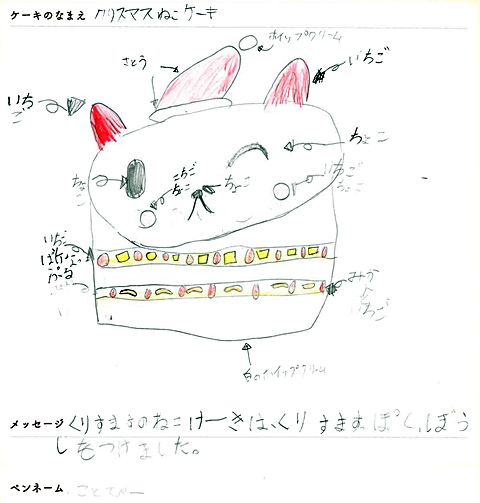 ケーキのなまえ クリスマスねこケーキ
ホイップクリーム
さとう
いちご
いち
ご
ちょこ
ちょ
こ
いちご
ちょこ
ちょこ
いちご
ちょこ
いちご
ぱいなっ
ぷる
みかん
いちご
白のホイップクリーム
メッセージ くりすますのねこけーきは、くりすますぽく、ぼう
しをつけました。
ペンネーム